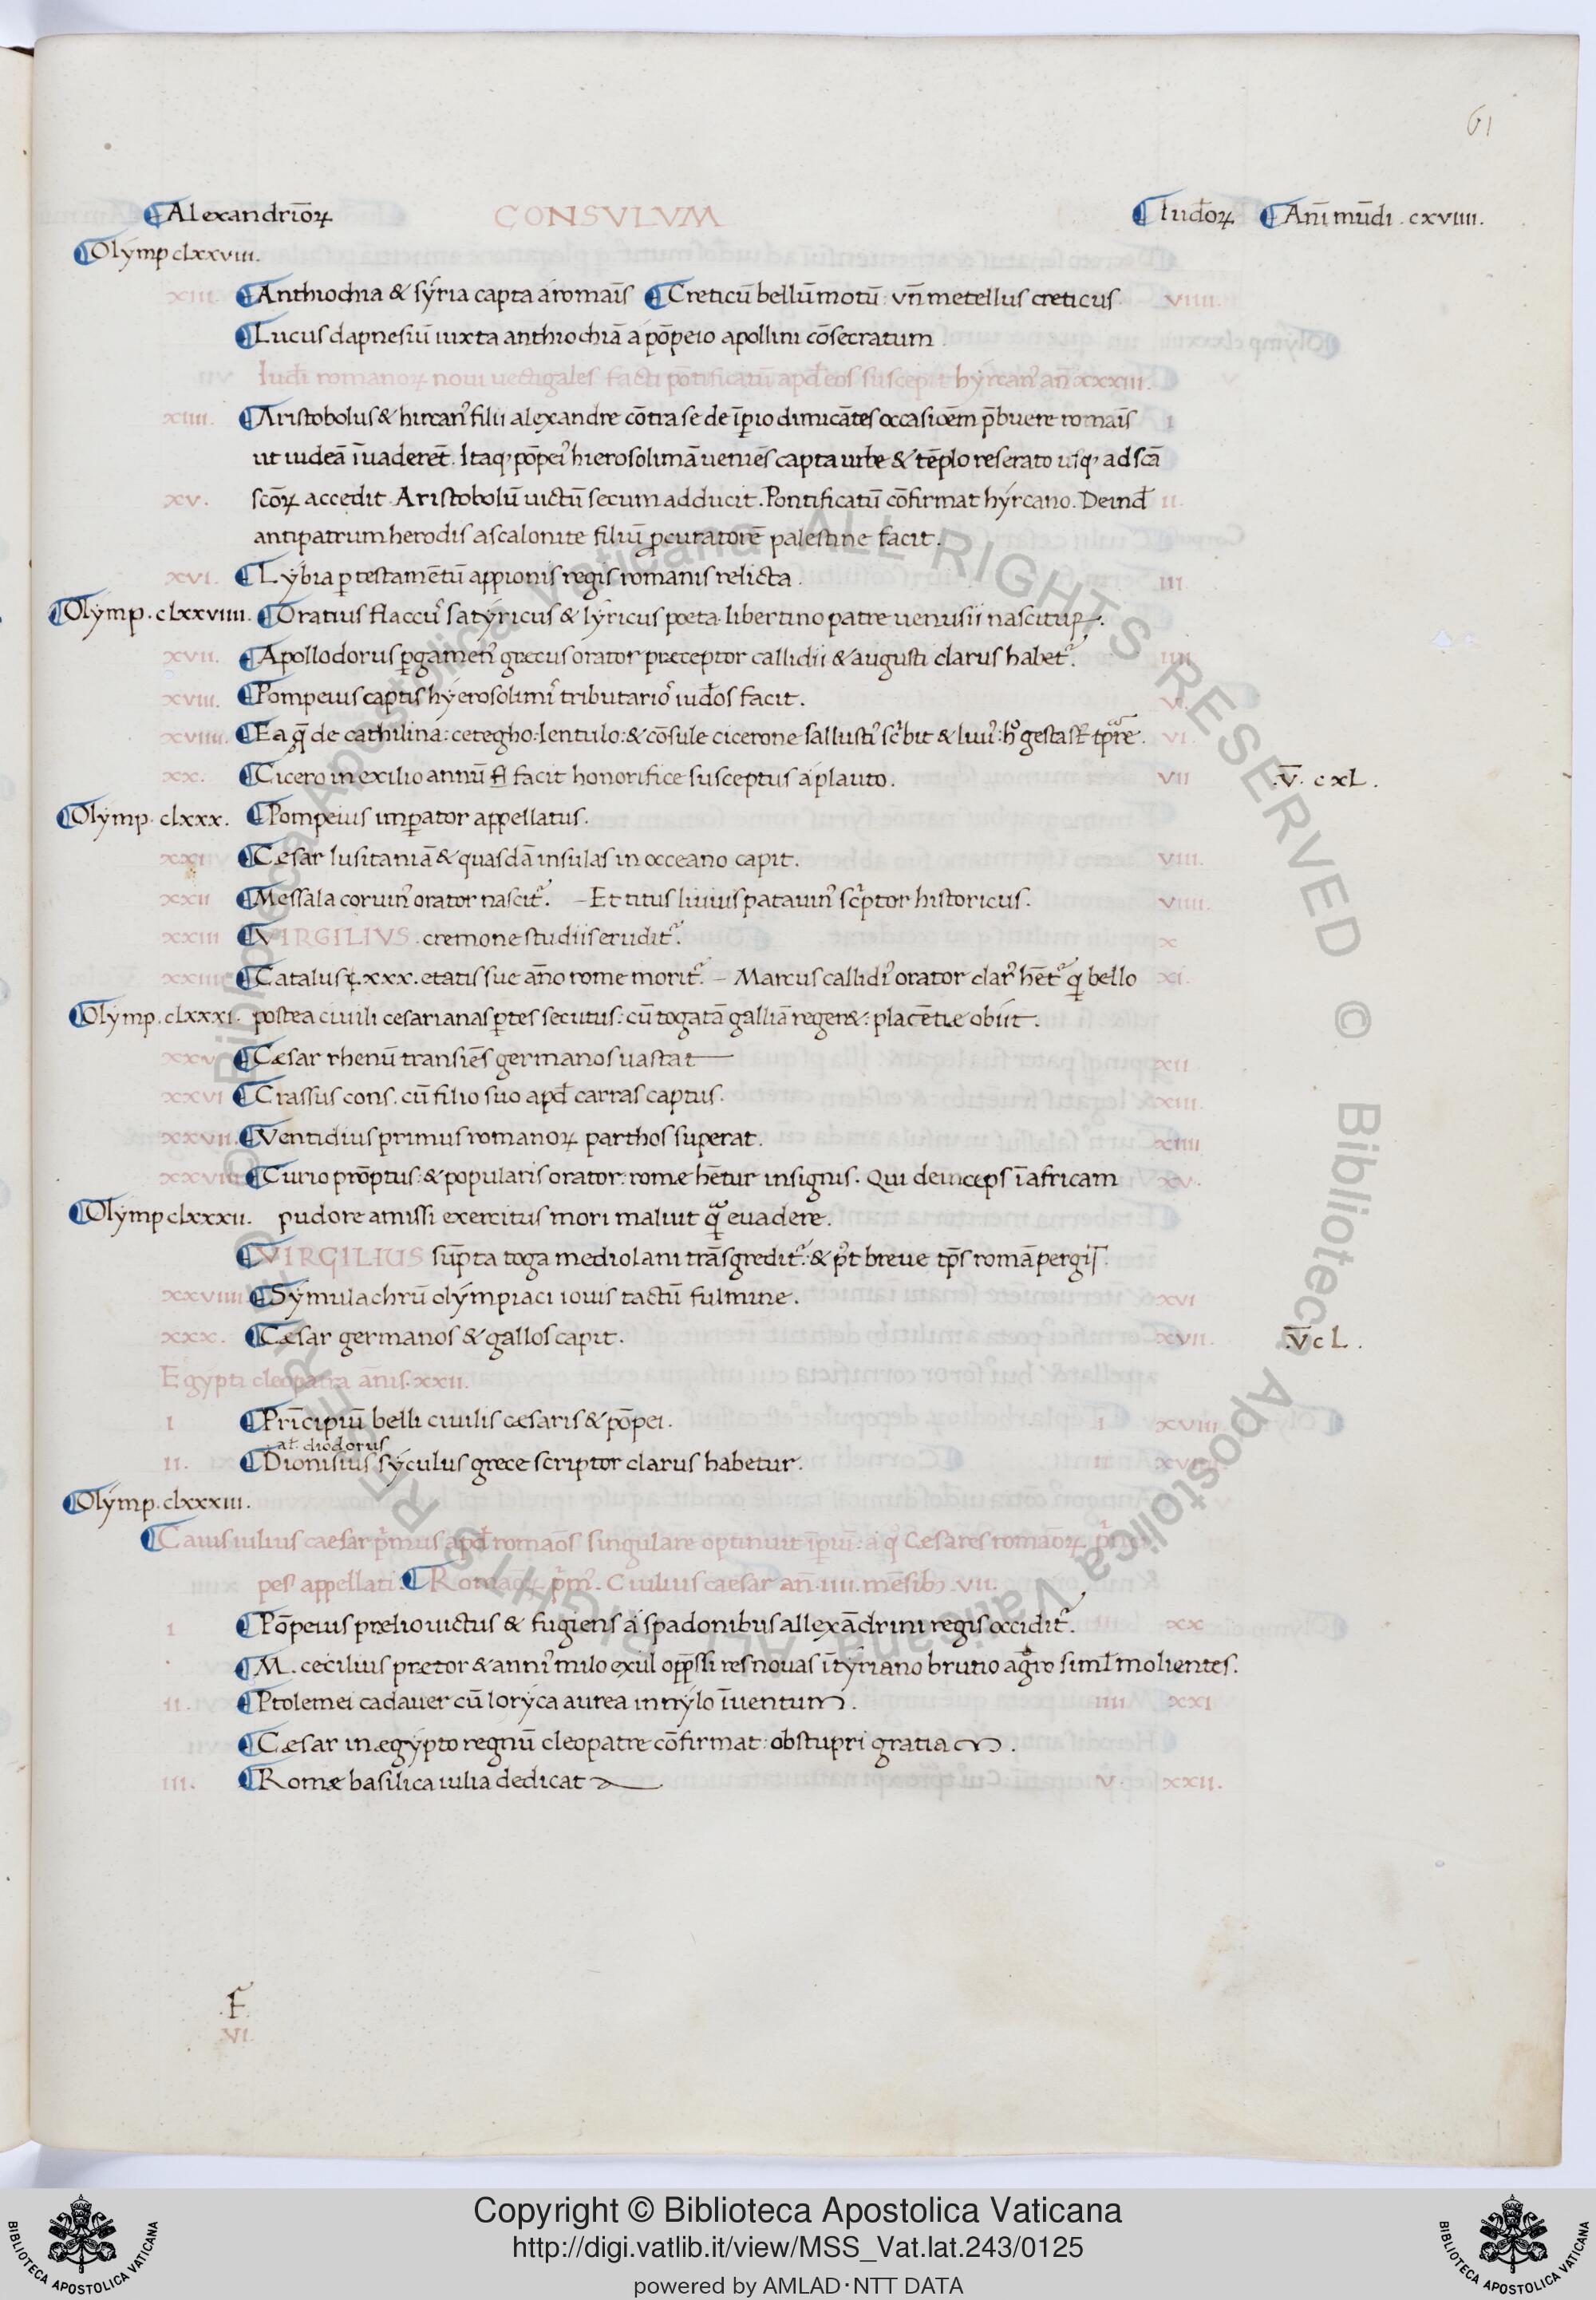 61
¶Alexandrioꝝ̄ CONSVLVM ¶Iudeoꝝ ¶Añi mūdi . cxviiii.
¶Olymp clxxviii.
xiii. ¶Anthiochia & syria capta a romaīs ¶Creticū bellū motū: vn̄ metellus creticus viiii.
¶Lucus dapnesiū iuxta anthiochiā a pōpeio apollini cōsecratum.
Iudei romanoꝝ noui uectigales facti pōtificatū apđ eos suscepit hyrcanꝰ an̄ xxxiii.
xiiii. ¶Aristobolus & hircanꝰ filii alexandre cōtra se de īꝑio dimicātes occasiōem p̄buere romaīs i
ut iudeā īuaderēt. Itaqꝫ pōpeiꝰ hierosolimā ueniēs capta urbe & tēplo reserato usqꝫ ad scā
xv. scōꝝ accedit. Aristobolū uictū secum adducit. Pontificatū cōfirmat hyrcano. Deinđ ii.
antipatrum herodis ascalonite filiū ꝓcuratorē palestine facit.
xvi. ¶Lybia ꝑ testamētū appionis regis romanis relicta. iii.
¶Olymp. clxxviiii. ¶Oratius flaccuꝰ satyricus & lyricus poeta libertino patre uenusii nascitur.
xvii. ¶Apollodorus ꝑgamenꝰ grecus orator preceptor callidii & augusti clarus habetᷣ. iiii
xviii. ¶Pompeius captis hyerosolimiꝰ tributarioꝰ iuđos facit. v.
xviiii. ¶Ea q̄ de cathilina: cetegho: lentulo: & cōsule cicerone sallustiꝰ scͥbit & liuiꝰ: hͦ gesta sт̄ tp̄re. vi.
xx. ¶Cicero in exilio annū facit honorifice susceptus a plauto. vii .V̄. cxL.
¶Olymp. clxxx. ¶Pompeius imꝑator appellatus.
xxi ¶Cæsar lusitaniā & quasdā insulas in occeano capit. viii.
xxii ¶Messala coruinꝰ orator nascitᷣ. – Et titus liuius patauinꝰ scͥptor historicus. viiii.
xxiii ¶VIRGILIVS . cremone studiis eruditᷣ. x
xxiiii ¶Catalus xxx. etatis sue año rome moritᷣ. – Marcus callidiꝰ orator clarꝰ hētᷣ qͥ bello xi.
¶Olymp. clxxxi. postea ciuili cesarianas ꝑtes secutus: cū togatā galliā reger&: placētie obiit.
xxv ¶Cæsar rhenū transiēs germanos uastat xii
xxvi ¶Crassus cons. cū filio suo apđ carras captus. xiii.
xxvii. ¶Ventidius primus romanoꝝ parthos superat. xiiii
xxviii ¶Curio prōptus: & popularis orator: romæ hētur insignis. Qui deinceps ī africam xv.
¶Olymp clxxxii. pudore amissi exercitus mori maluit qᷓ euadere.
¶VIRGILIUS sūpta toga mediolani trāsgreditᷣ: & pꝰt breue tp̄s romā pergit.
xxviiii ¶Symulachrū olympiaci iouis tactū fulmine. xvi
xxx. ¶Cæsar germanos & gallos capit. xvii. .V̄cL.
Egypti cleopatra ān̄is. xxii.
i ¶Prīcipiū belli ciuilis cæsaris & pōpei. i xviii
aƚ. diodorus
ii. ¶Dionisius syculus grece scriptor clarus habetur. ii xviiii
¶Olymp. clxxxiii.
¶Caius iulius caesar pͥmus apđ romaōs singulare optinuit īꝑiū: a qͦ Cesares romāoꝝ pͥnci
pes appellati. ¶Romāoꝝ pͥmꝰ. C iulius caesar an̄. iiii. mēsibꝫ. vii.
i ¶Pōpeius prelio uictus & fugiens a spadonibus allexādrini regis occiditᷣ. xx
¶M. cecilius prætor & anniꝰ milo exul opp̄ssi res nouas ī tyriano brutio agro simƚ molientes.
ii. ¶Ptolemei cadauer cū loryca aurea in nylo īuentum. iiii xxi
¶Cæsar in ægypto regnū cleopatre cōfirmat: ob stupri gratiam.
iii. ¶Romæ basilica iulia dedicat v. xxii.
.F.
.VI.
© Biblioteca Apostolica Vaticana ALL RIGHTS RESERVED © Biblioteca Apostolica Vaticana ALL RIGHTS RESERVED
Copyright © Biblioteca Apostolica Vaticana
http://digi.vatlib.it/view/MSS_Vat.lat.243/0125
powered by AMLAD·NTT DATA
BIBLIOTECA APOSTOLICA VATICANA
BIBLIOTECA APOSTOLICA VATICANA